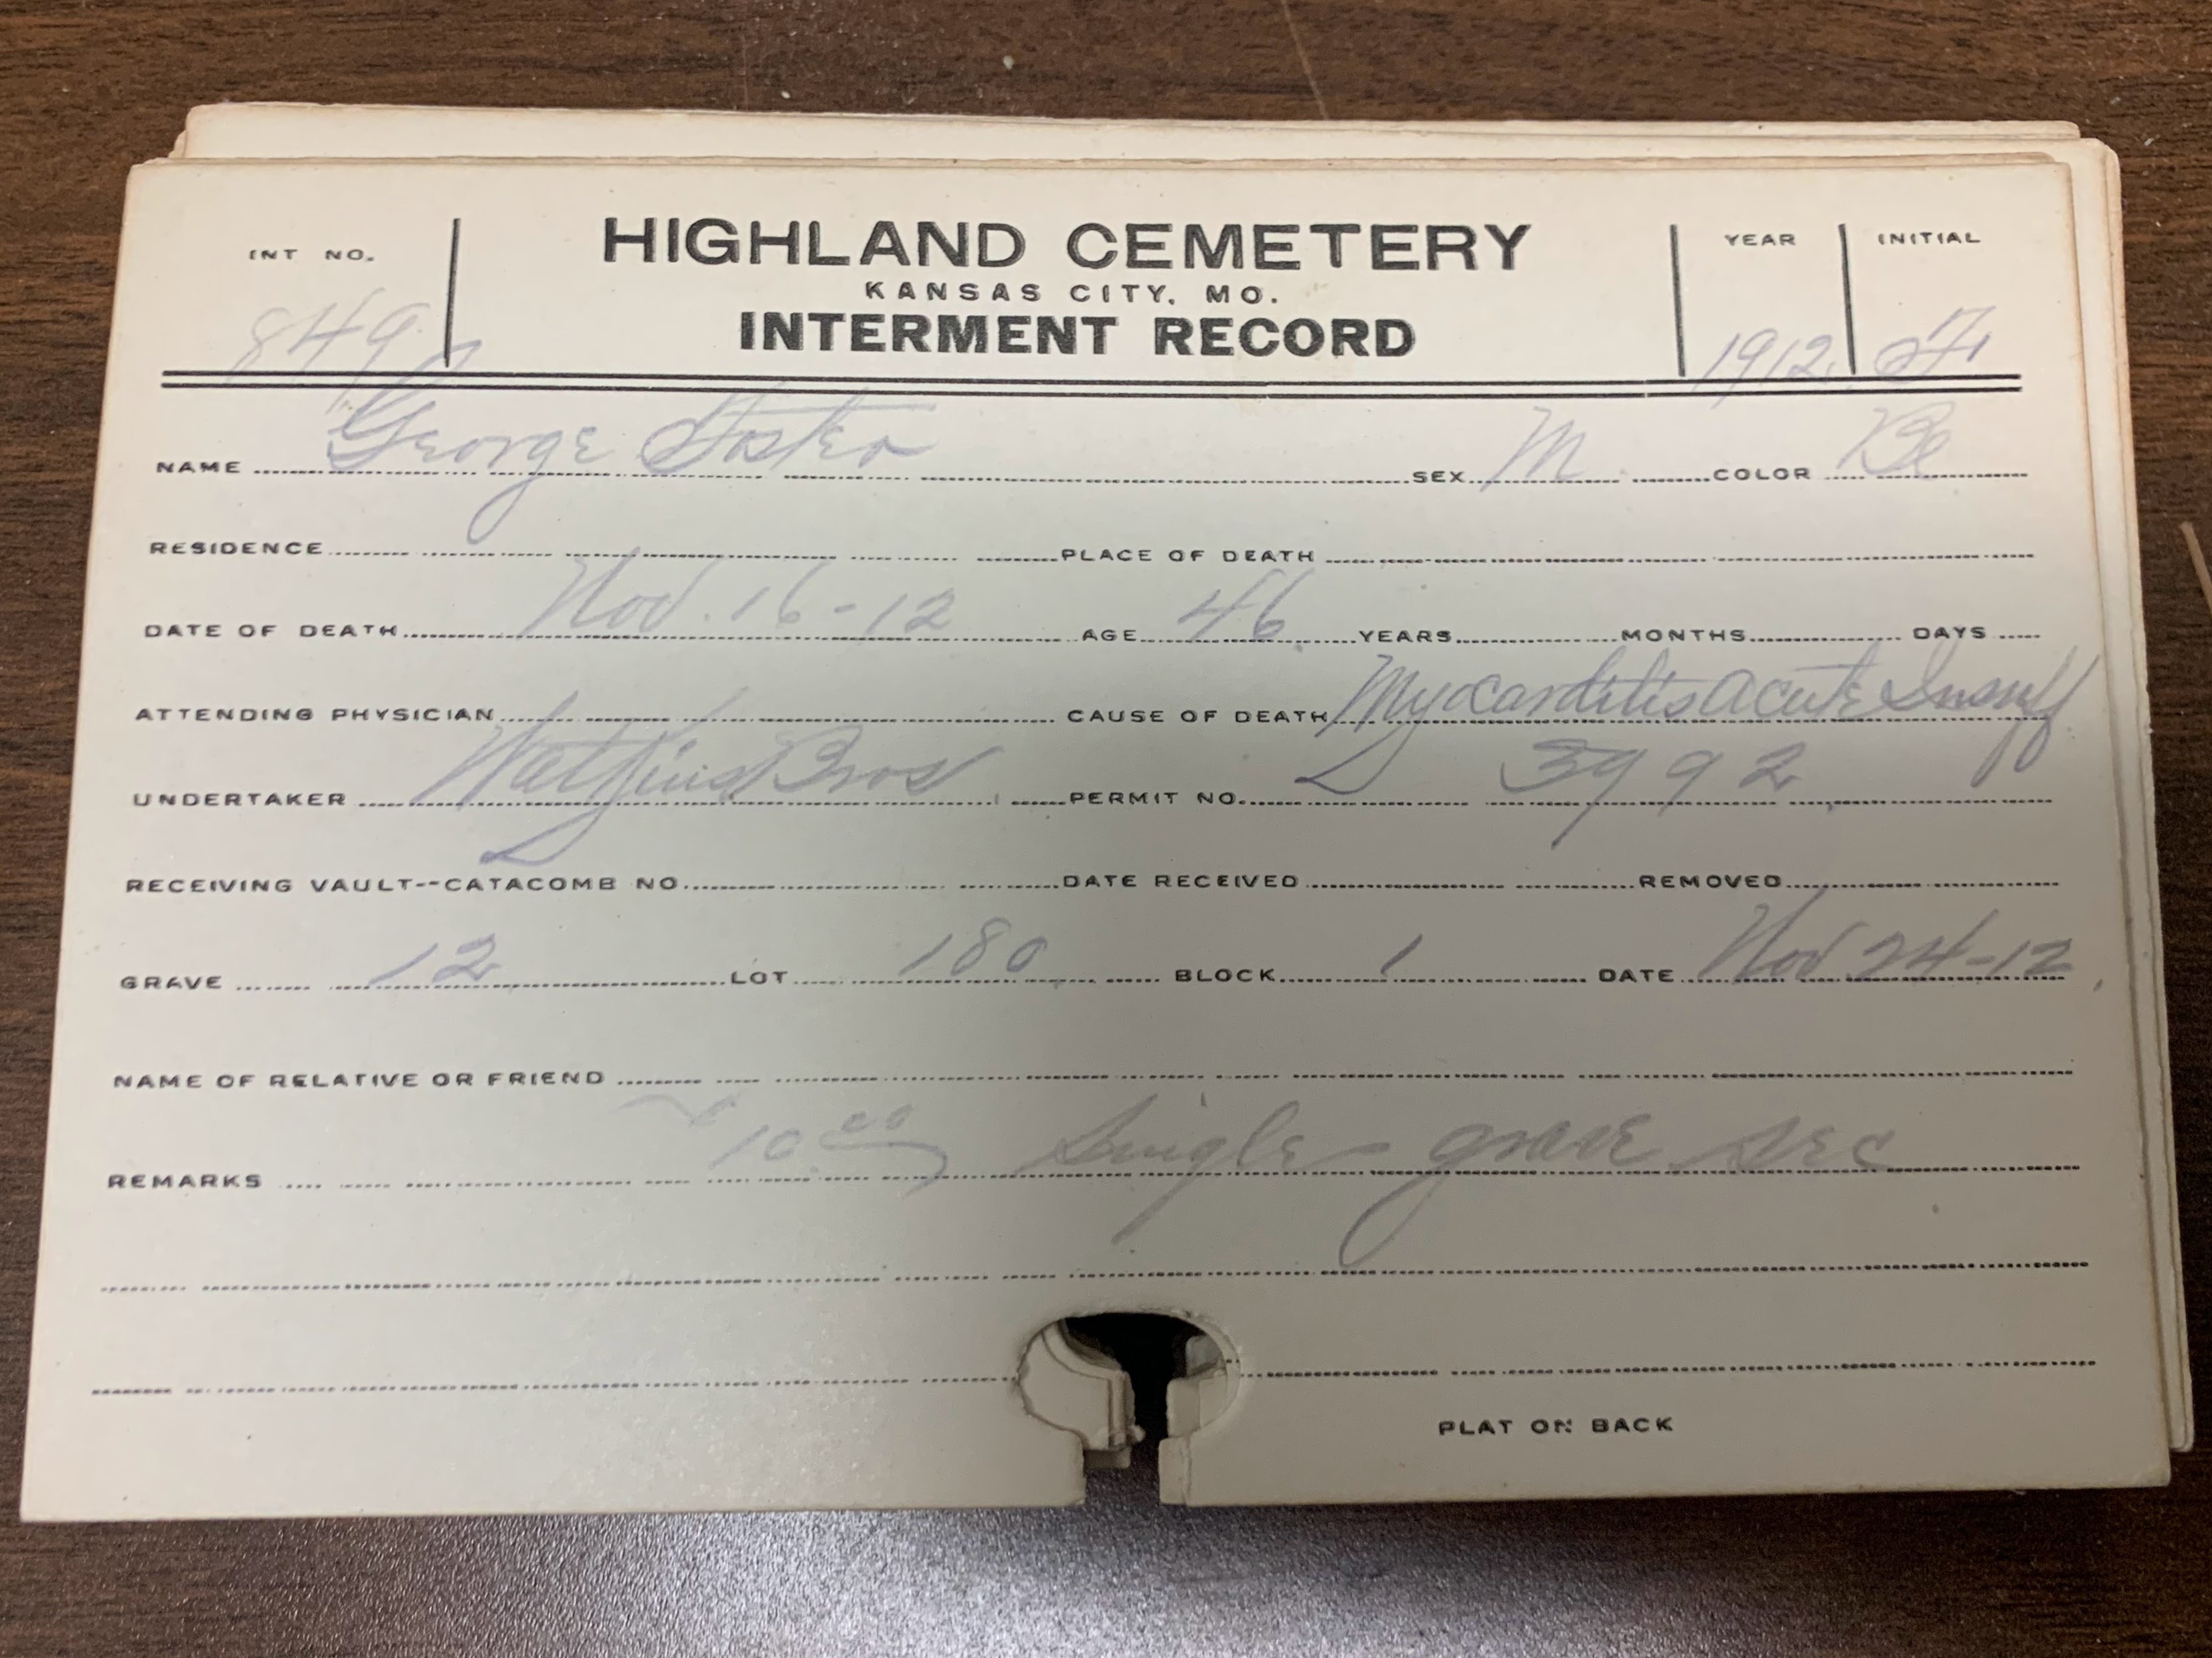 INT NO. HIGHLAND CEMETERY YEAR INITIAL
KANSAS CITY, MO.
849 INTERMENT RECORD 1912. F.
NAME George Foster SEX M COLOR Bl
RESIDENCE PLACE OF DEATH
DATE OF DEATH Nov. 16-12 AGE 46 YEARS MONTHS DAYS
ATTENDING PHYSICIAN CAUSE OF DEATH Myocarditis acute Insuff
UNDERTAKER Watkins Bros PERMIT NO. 3992
RECEIVING VAULT--CATACOMB NO. DATE RECEIVED REMOVED
GRAVE 12 LOT 180 BLOCK 1 DATE Nov 24-12
NAME OF RELATIVE OR FRIEND
REMARKS 10.00 Single grave sec
PLAT ON BACK